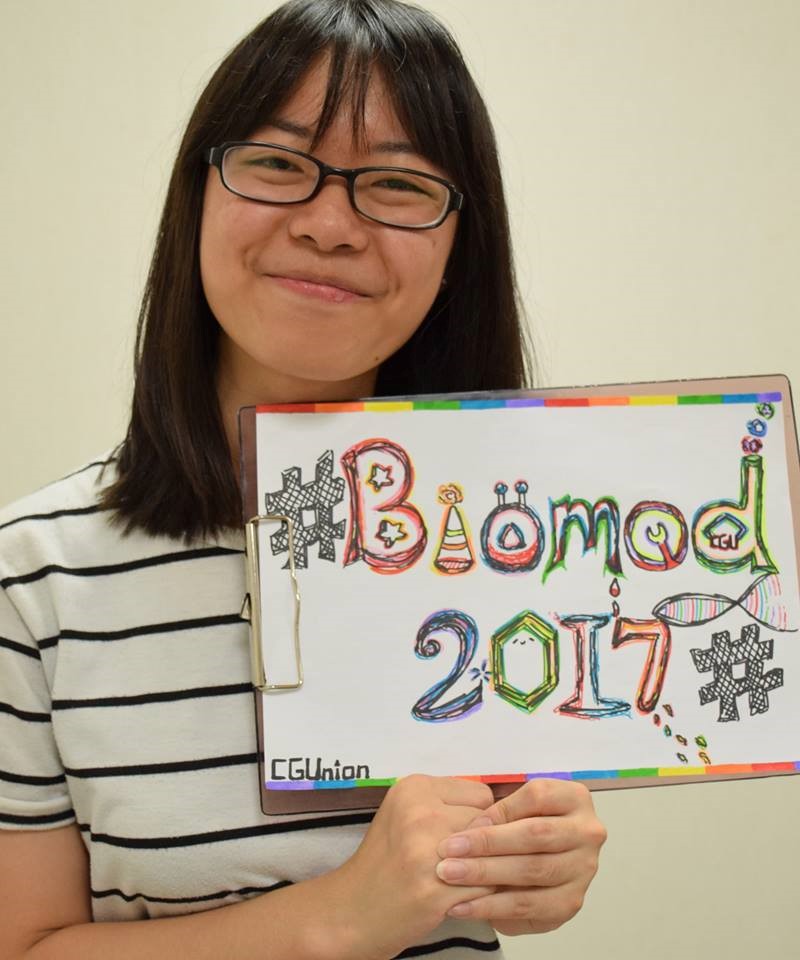 #Biomod
CGU
2017#
CGUnion